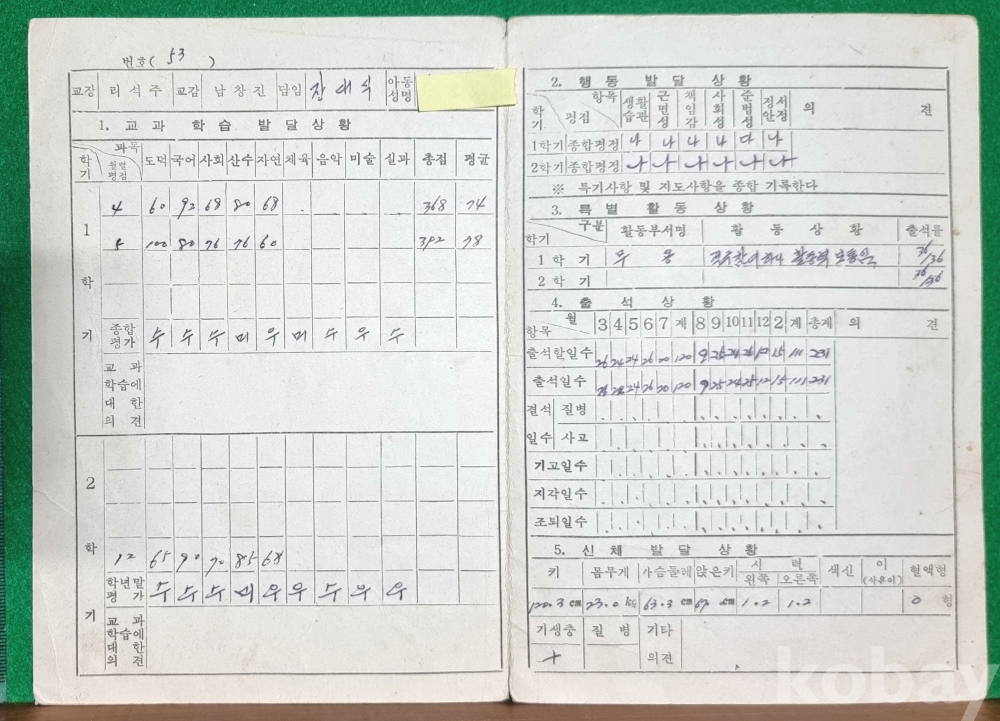 번호( 53 )
교장 리석주 교감 남창진 담임 아동성명
1. 교과 학습 발달상황
학기 과목 월별평점 도덕 국어 사회 산수 자연 체육 음악 미술 실과 총점 평균
1학기
4 60 92 68 80 68 368 74
5 100 80 76 76 60 392 78
종합평가 수 수 수 미 우 미 수 우 수
교과학습에 대한 의견
2학기
12 65 90 70 85 68
학년말평가 수 수 수 미 우 우 수 우 우
교과학습에 대한 의견
2. 행동 발달 상황
학기 항목 평점 생활습관 근면성 책임감 사회성 준법성 정서안정 의견
1학기 종합평정 나 나 나 나 다 나
2학기 종합평정 나 나 나 나 나 나
※ 특기사항 및 지도사항을 종합 기록한다
3. 특별 활동 상황
학기 구분 활동부서명 활동상황 출석률
1학기 무용 36/36
2학기 36/36
4. 출석상황
항목 월 3 4 5 6 7 계 8 9 10 11 12 2 계 총계 의견
출석할일수 26 24 24 26 20 120 9 25 24 26 12 15 111 231
출석일수 26 24 24 26 20 120 9 25 24 25 12 15 111 231
결석일수 질병
사고
기고일수
지각일수
조퇴일수
5. 신체 발달 상황
키 몸무게 가슴둘레 앉은키 시력 왼쪽 오른쪽 색신 이(사유이) 혈액형
120.3 cm 23.0 kg 63.3 cm 67 cm 1.2 1.2 O 형
기생충 질병 기타의견
+
kobay